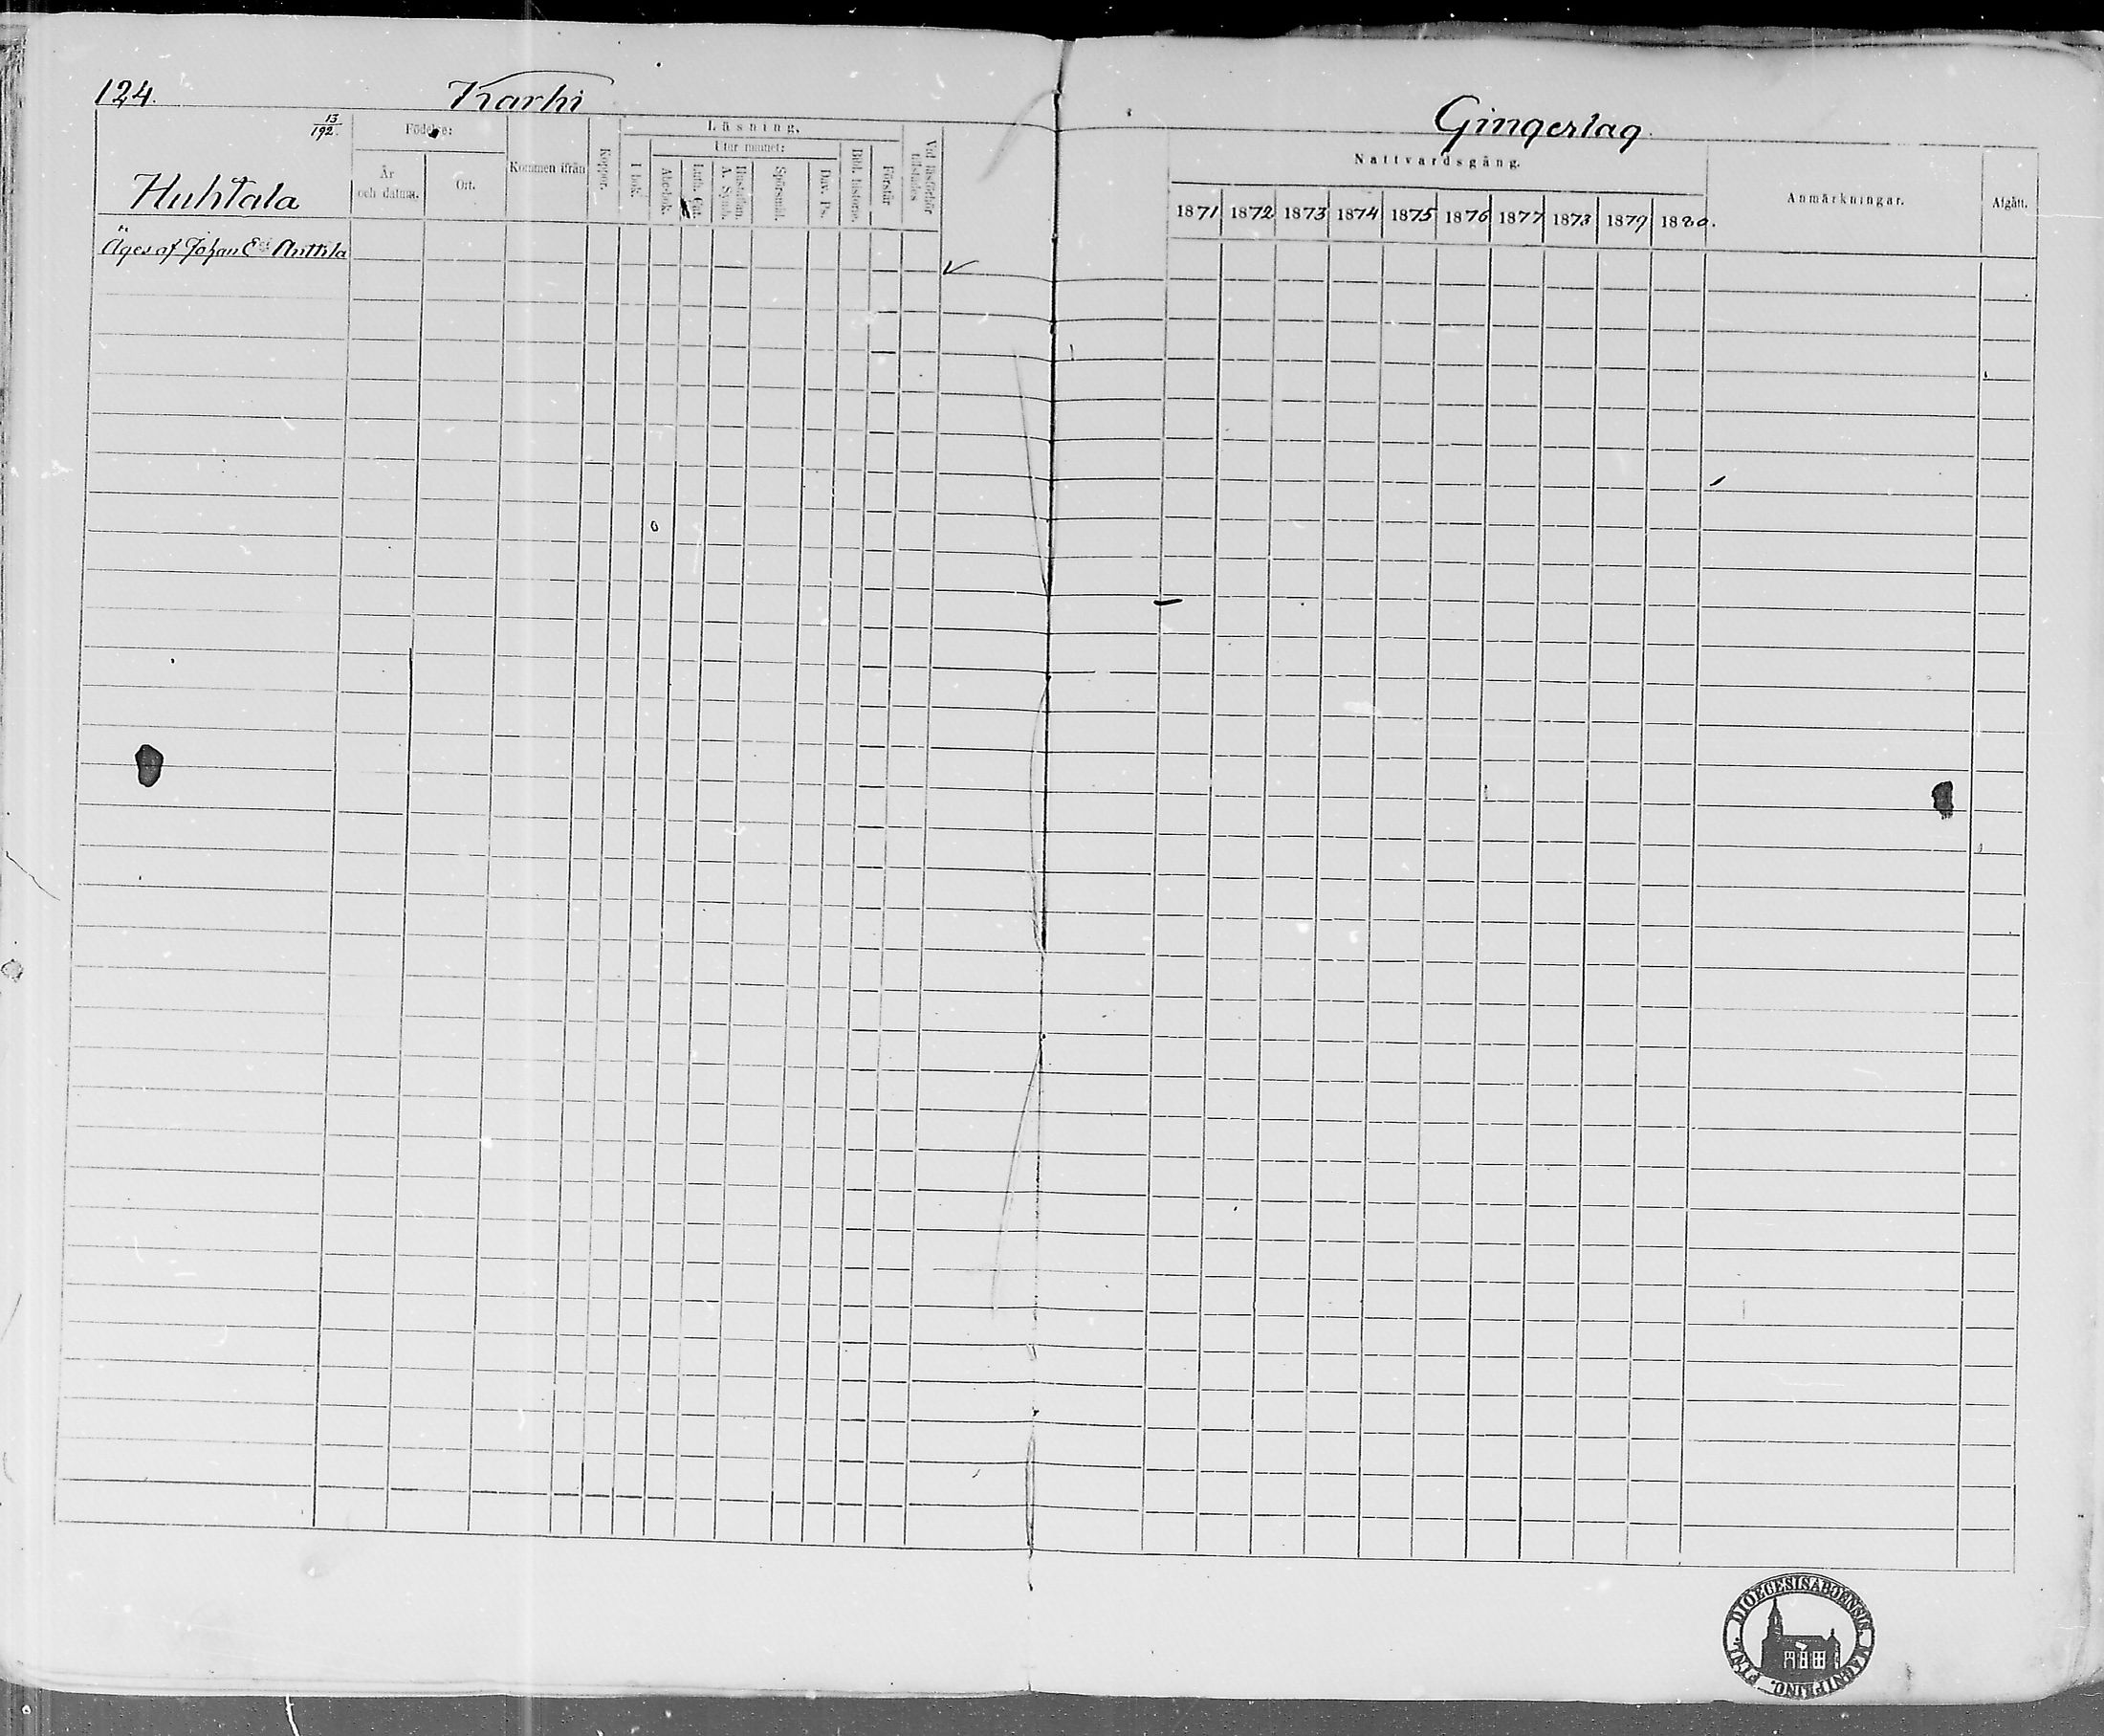 124.
Karhi
Gingerlag.
13/192.
Huhtala
Födelse:
År och datum.
Ort.
Kommen ifrån
Koppor.
Läsning.
I bok.
Utur minnet:
Abcbok.
Luth. Cat.
Hustaflan. A. Symb.
Spörsmål.
Dav. Ps.
Bibl. historie.
Förstår
Vid läsförhör tillstädes
Nattvardsgång.
1871 1872 1873 1874 1875 1876 1877 1878 1879 1880.
Anmärkningar.
Afgått.
Äges af Johan Anttila
DIOECESIS ABOENSIS. MAGNI PRINC. FINL.